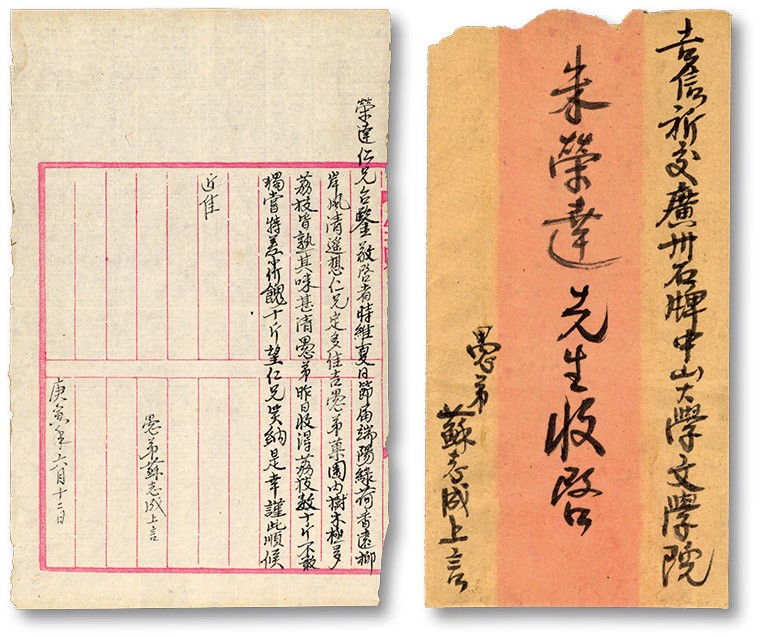 榮達仁兄台鑒敬啓者時維夏日節届端陽綠荷香遠柳
岸風清遥想仁兄定多佳吉愚弟菓園内樹木極多
荔枝皆熟其味甚清愚弟昨日收得荔枝数十斤不敢
獨嘗特差小价餽十斤望仁兄笑納是幸謹此順候
近佳
愚弟蘇志成上言
庚寅年六月十二日
吉信祈交廣州石牌中山大學文學院
朱榮達先生收啓
愚弟
蘇志成上言